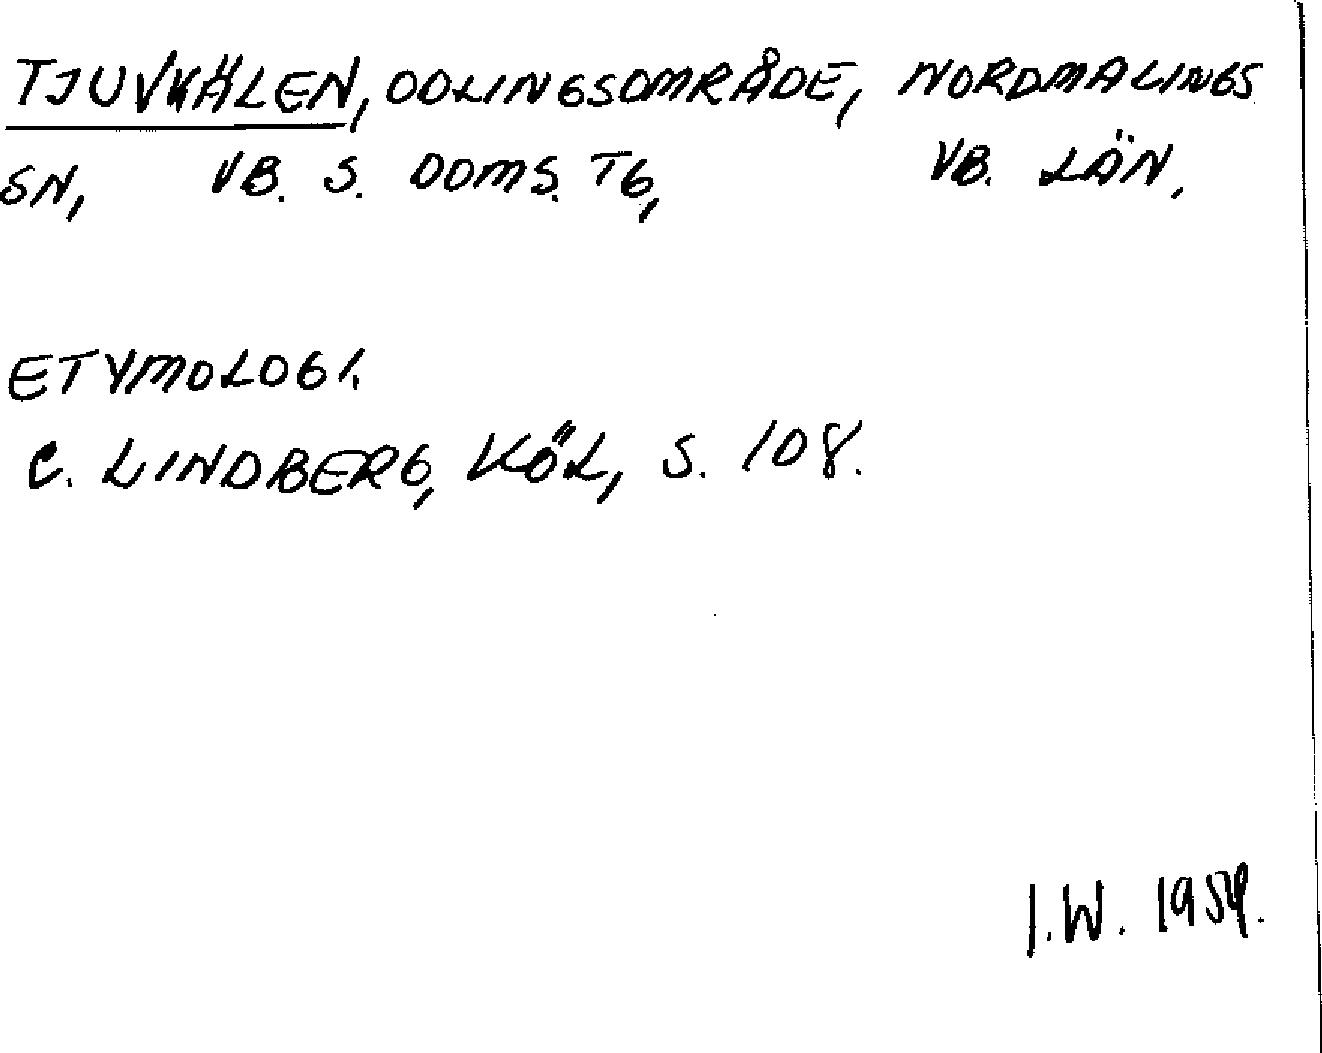 TJUVKÄLEN, ODLINGSOMRÅDE, NORDMALINGS
SN, VB. S. DOMS. TG, VB. LÄN.
ETYMOLOGI.
C. LINDBERG, KÖL, S. 108.
I.W. 1954.